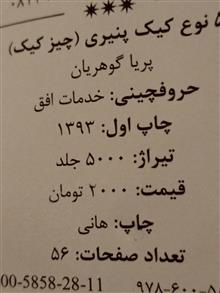 ***
نوع کیک پنیری (چیز کیک)
پریا گوهریان
حروفچینی: خدمات افق
چاپ اول: ۱۳۹۳
تیراژ: ۵۰۰۰ جلد
قیمت: ۲۰۰۰ تومان
چاپ: هانی
تعداد صفحات: ۵۶
00-5858-28-11 ۹۷۸-۶۰۰-۵